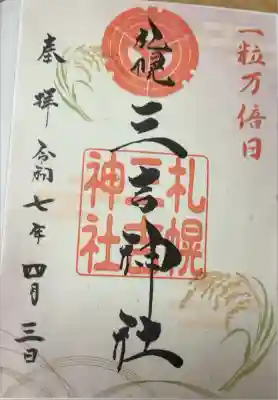 一粒万倍日
札幌
三吉神社
札幌
三吉
神社
奉拝
令和七年四月三日